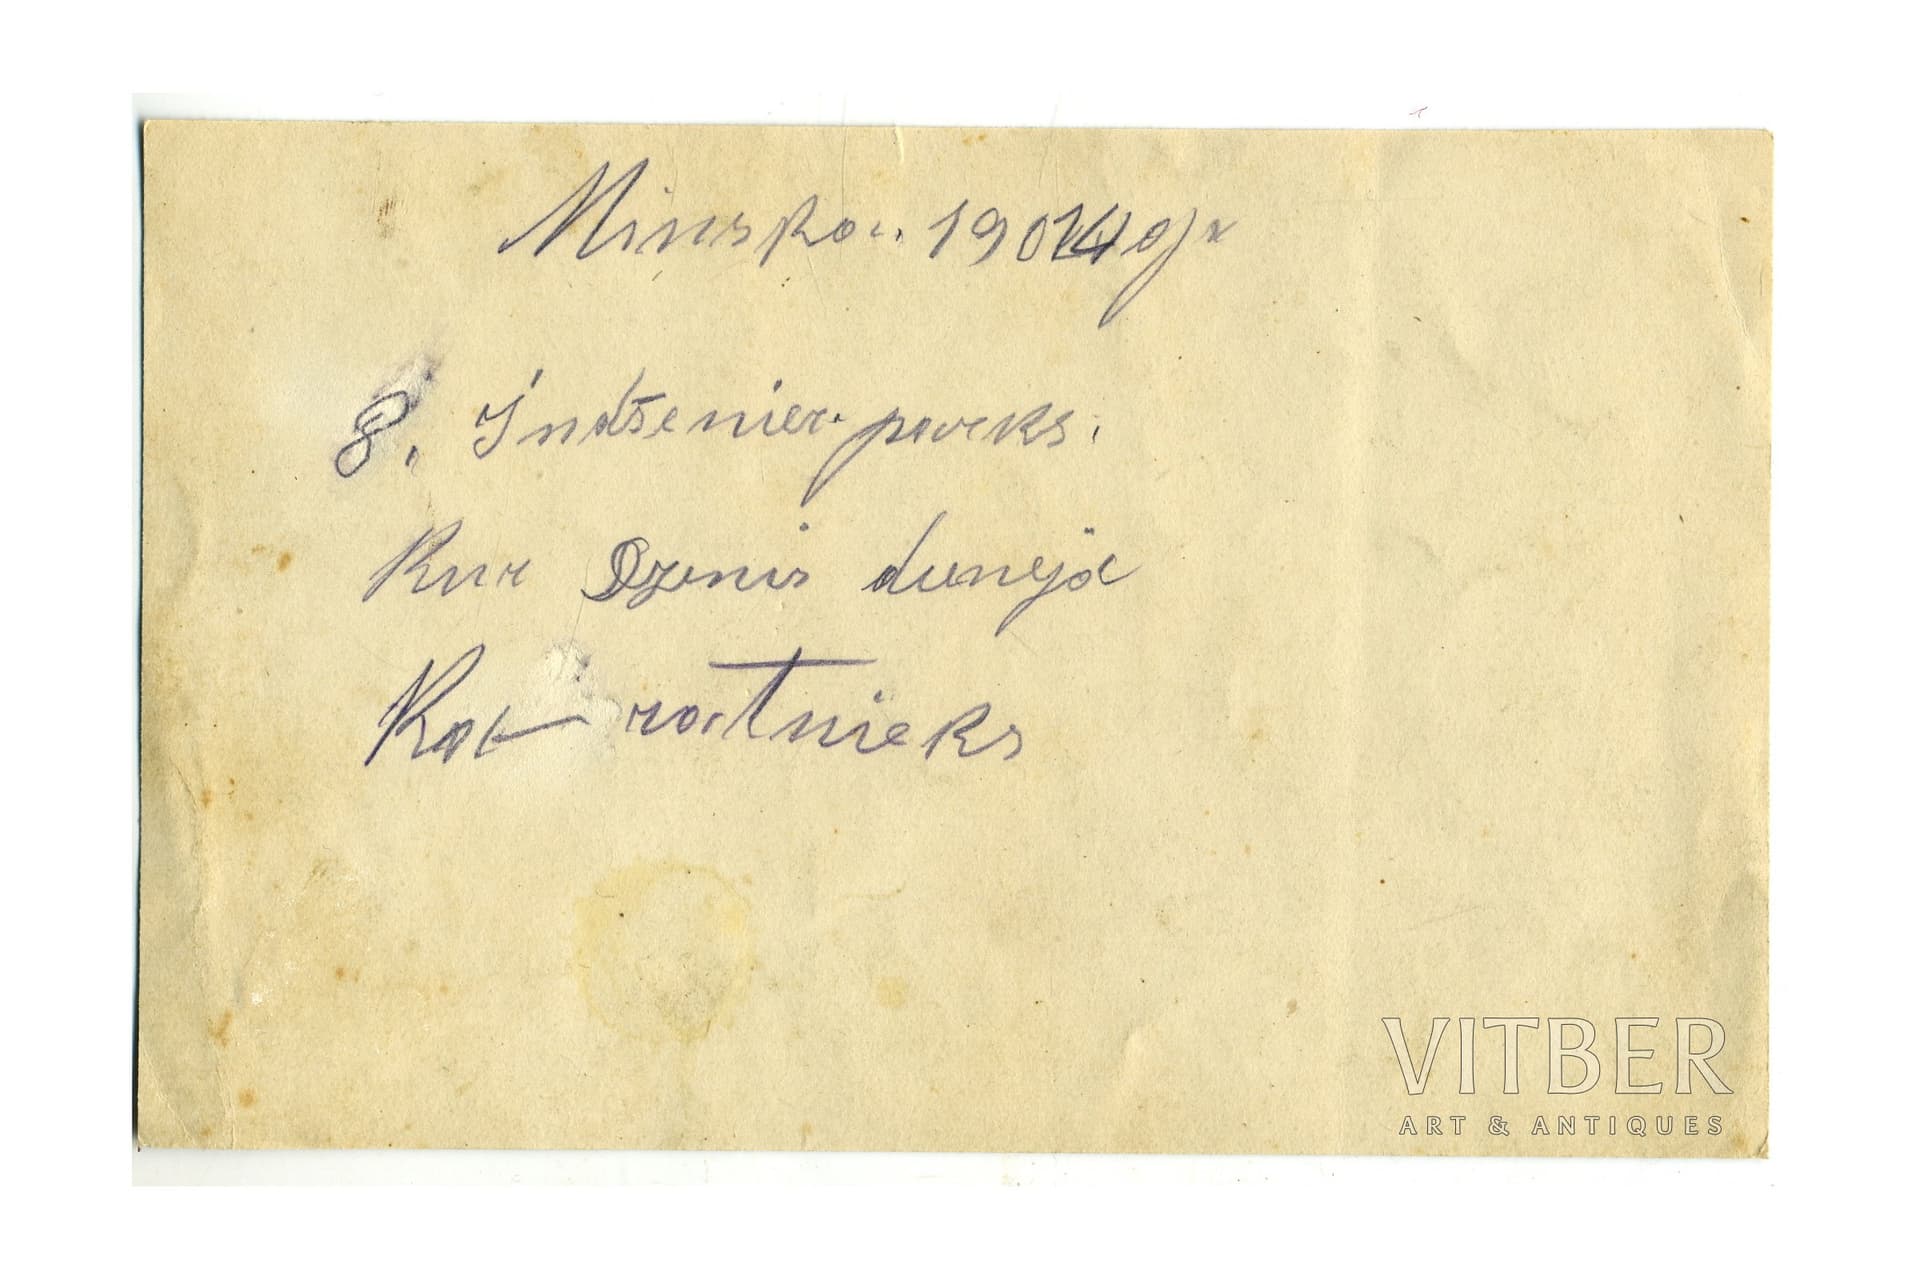 Minska. 1904 g.
8. Indženier parks.
Kur Dzenis dienēja
Kā ratnieks
VITBER
ART & ANTIQUES